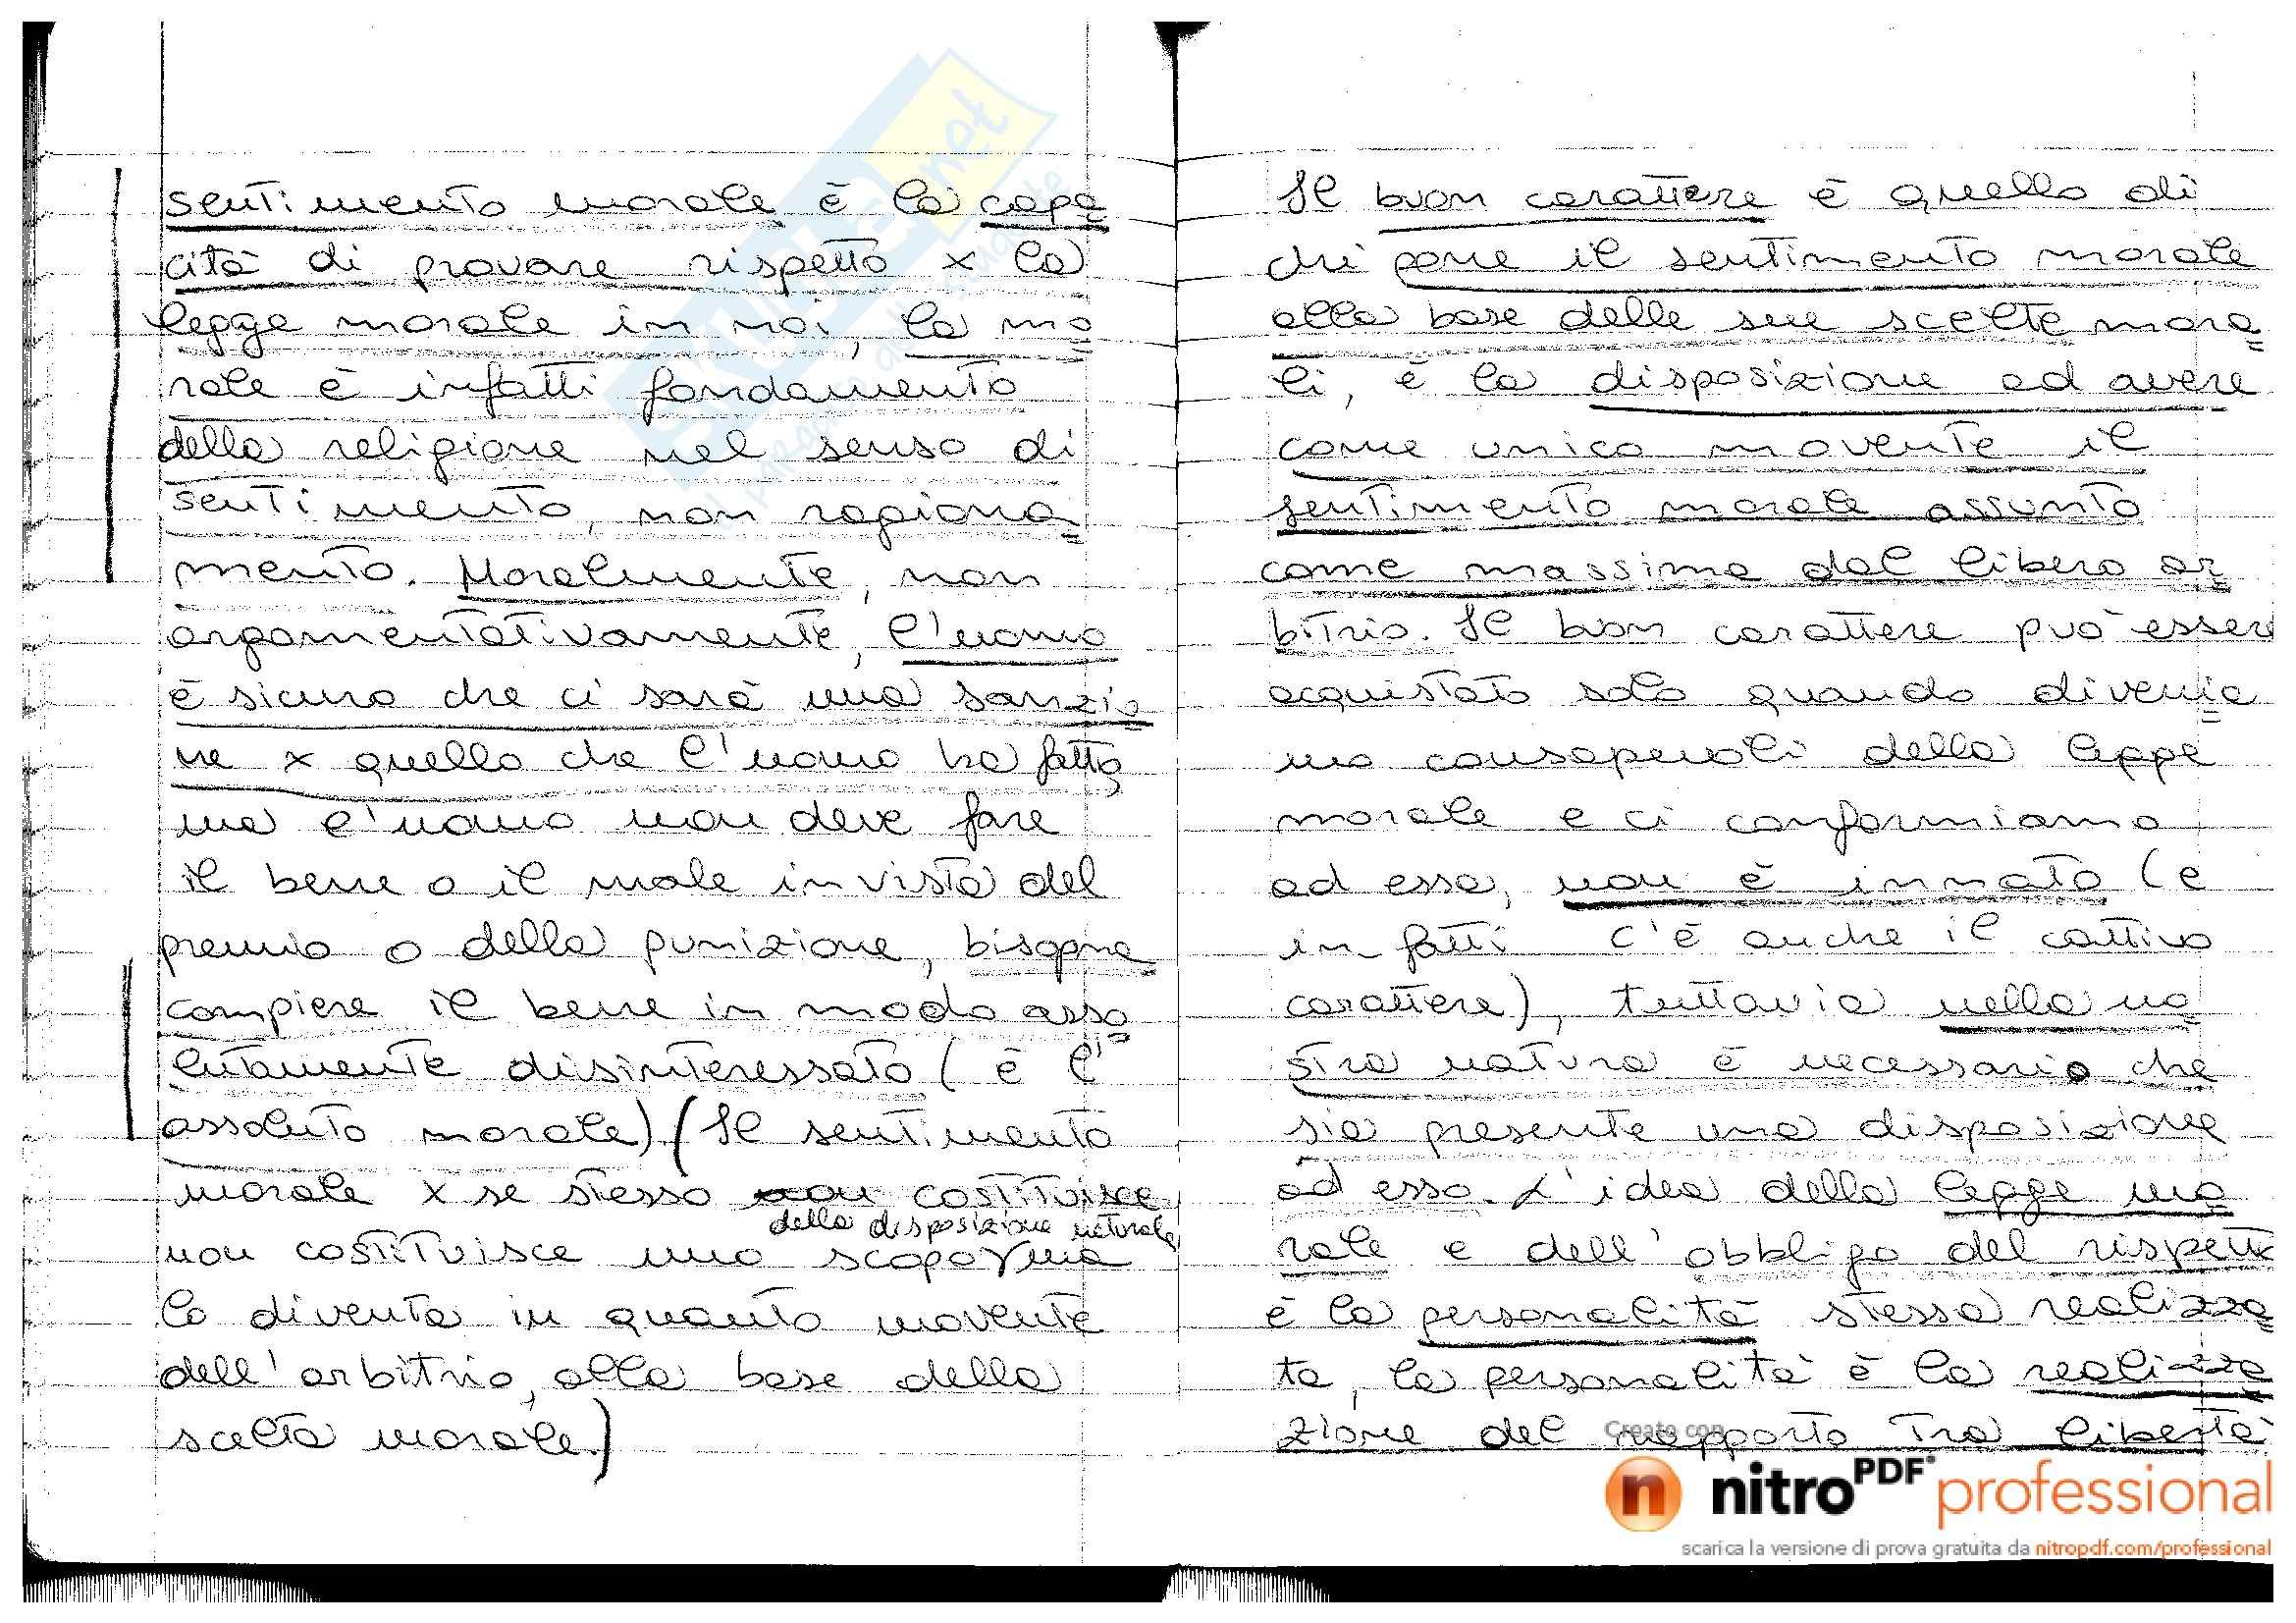 sentimento morale è la capa
cità di provare rispetto x la
legge morale in noi, la mo
rale è infatti fondamento
della religione nel senso di
sentimento, non ragiona
mento. Moralmente, non
argomentativamente, l'uomo
è sicuro che ci sarà una sanzio
ne x quello che l'uomo ha fatto,
ma l'uomo non deve fare
il bene o il male in vista del
premio o della punizione, bisogna
compiere il bene in modo asso
lutamente disinteressato (è l'
assoluto morale) (Il sentimento
morale x se stesso non costituisce
della disposizione naturale
non costituisce uno scopo ma
lo diventa in quanto movente
dell'arbitrio, alla base della
scelta morale.)
Il buon carattere è quello di
chi pone il sentimento morale
alla base delle sue scelte mora
li, è la disposizione ad avere
come unico movente il
sentimento morale assunto
come massima dal libero ar
bitrio. Il buon carattere può esser
acquistato solo quando divenia
mo consapevoli della legge
morale e ci conformiamo
ad essa, non è innato (e
infatti c'è anche il cattivo
carattere), tuttavia nella no
stra natura è necessario che
sia presente una disposizione
ad esso. L'idea della legge mo
rale e dell'obbligo del rispetto
è la personalità stessa realizza
ta, la personalità è la realizza
zione del rapporto tra libertà
Creato con
nitro PDF professional
scarica la versione di prova gratuita da nitropdf.com/professional